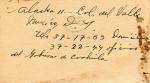 Alaska 11 - Col. del Valle
Mexico D.F.
Tel 39-17-53 Domicilio
37-22-44 oficina
del Gobierno de Coahuila